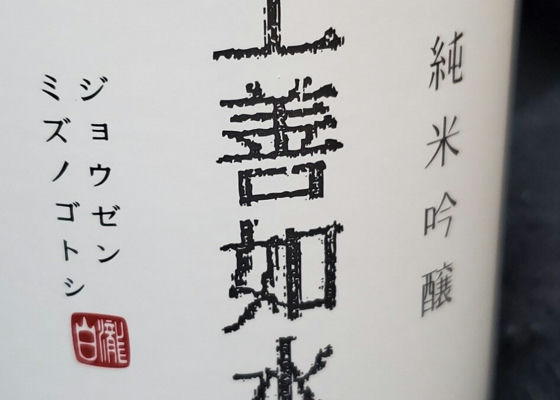 純米吟醸
上善如水
ジョウゼン
ミズノゴトシ
白瀧